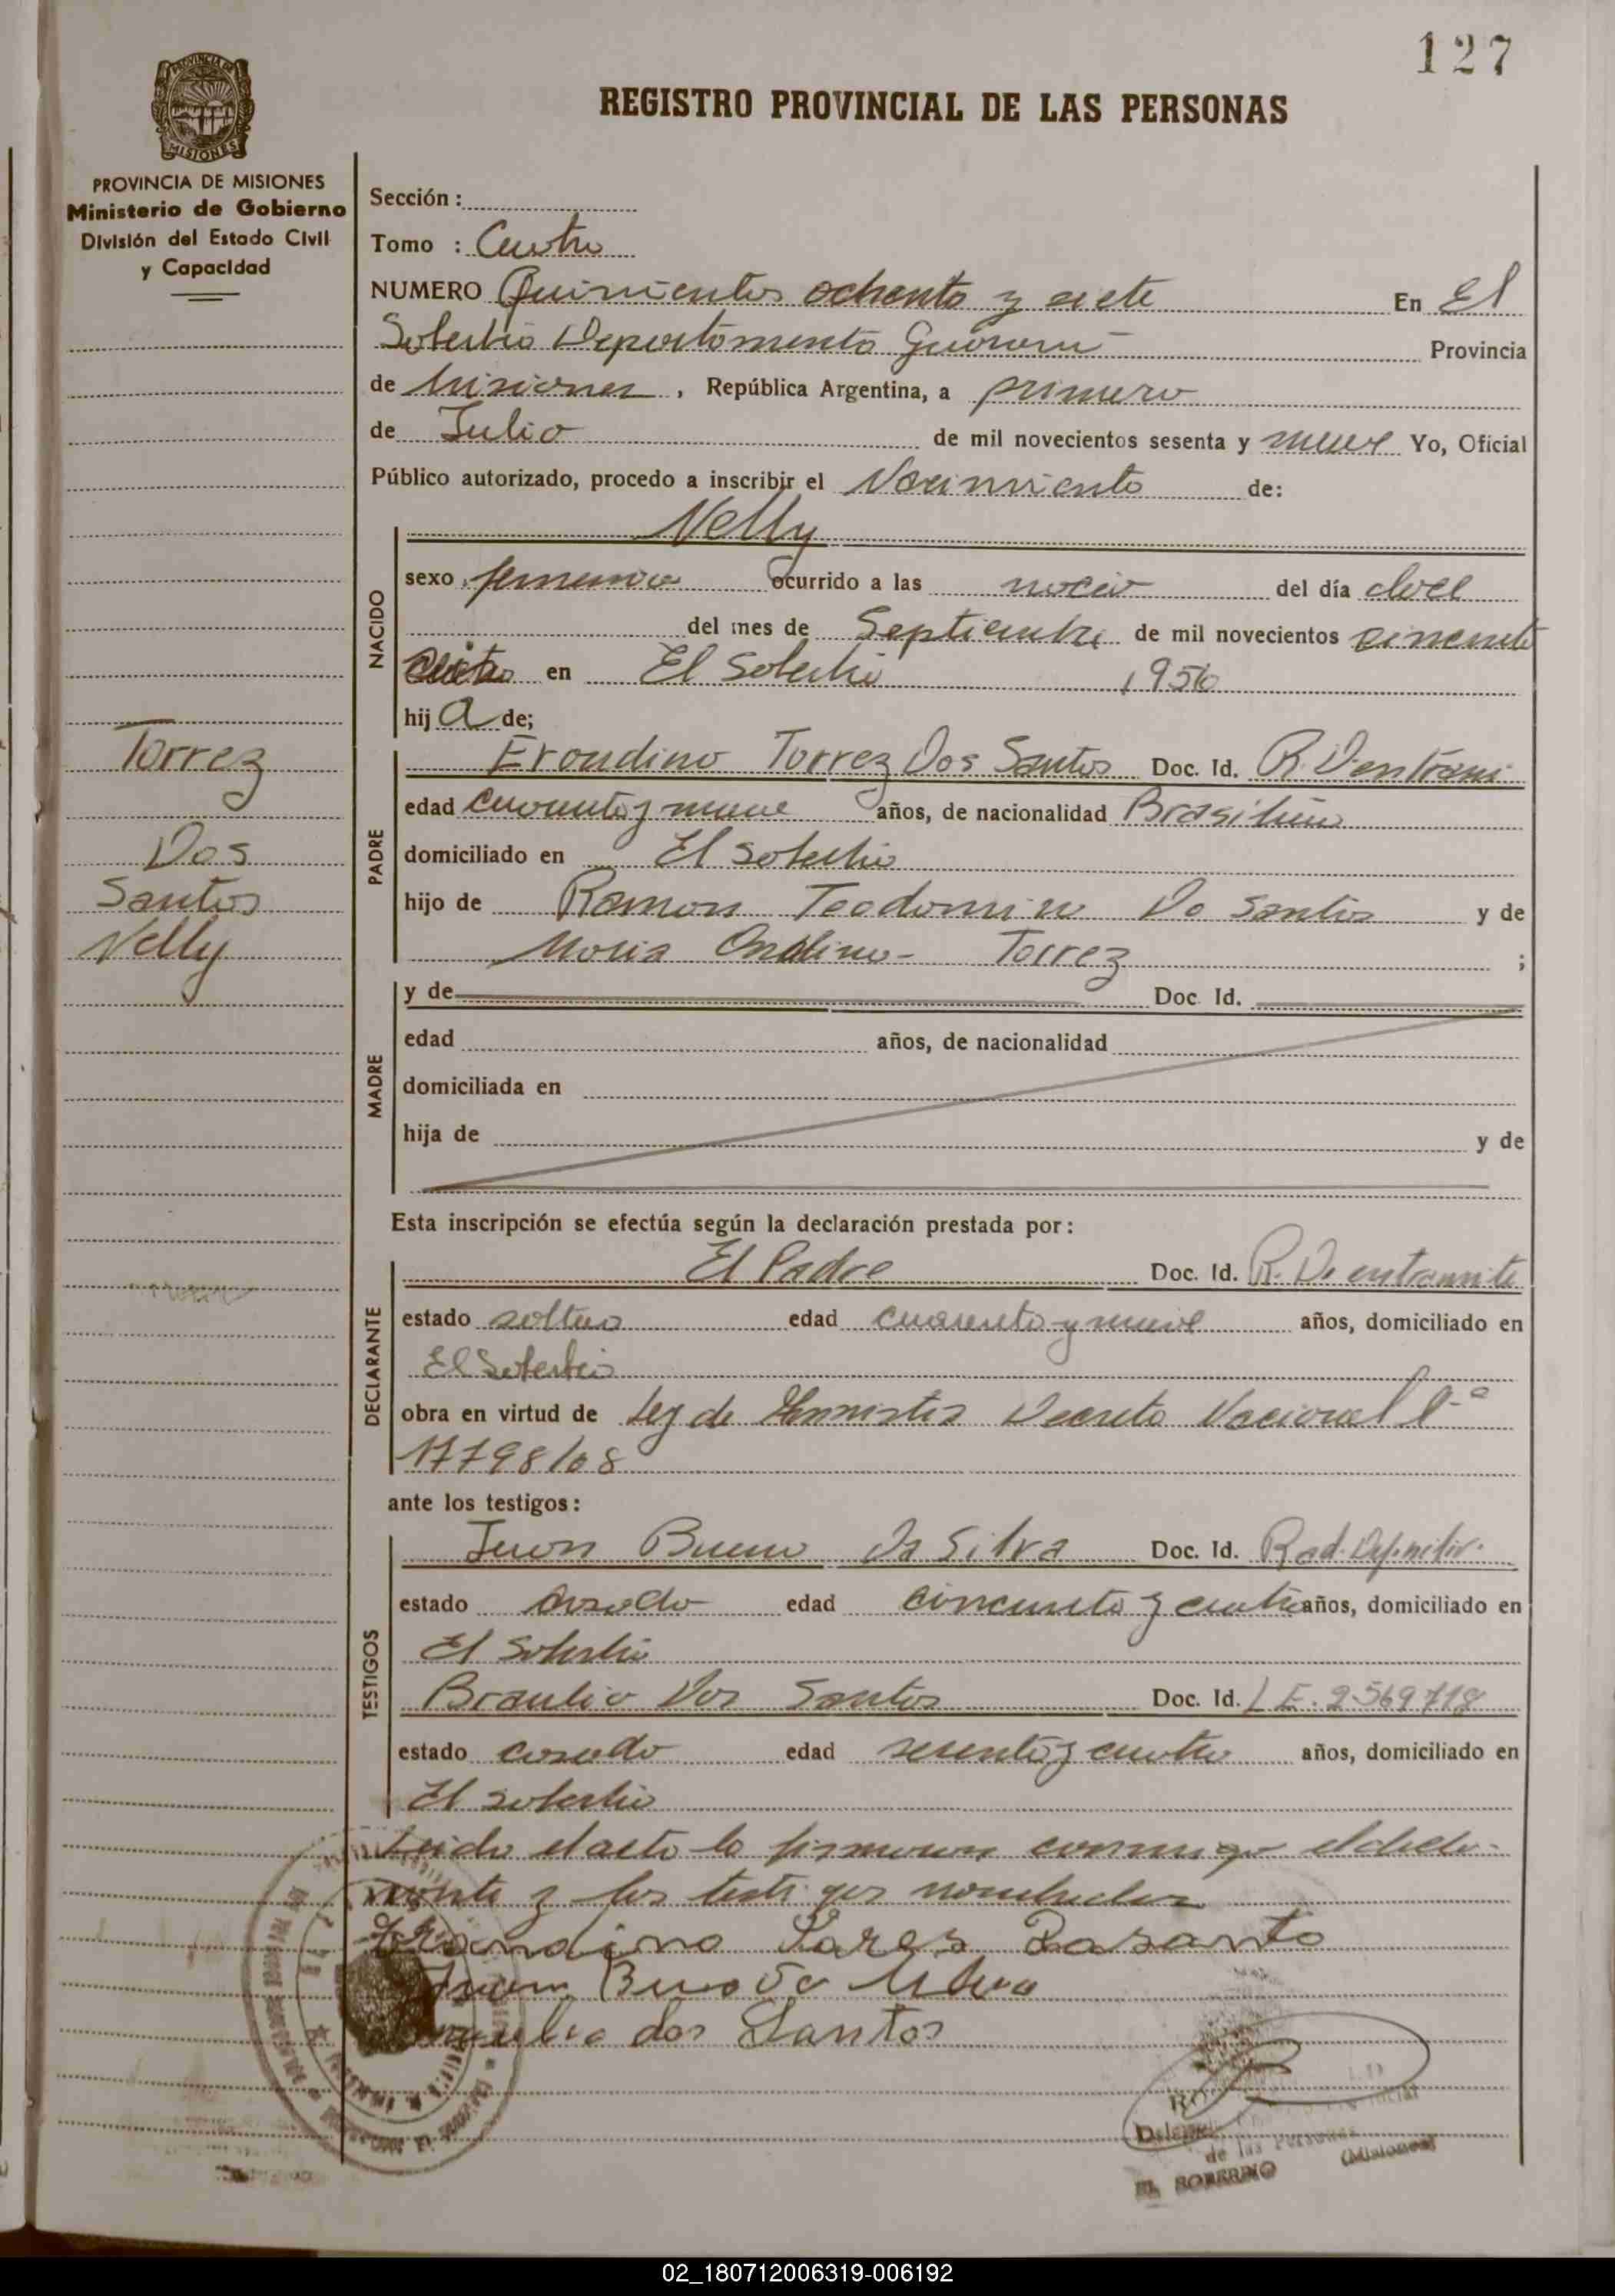 127
REGISTRO PROVINCIAL DE LAS PERSONAS
MISIONES
PROVINCIA DE MISIONES
Ministerio de Gobierno
División del Estado Civil
y Capacidad
Sección :
Tomo : Cuatro
NUMERO Quinientos ochenta y siete En El
Soberbio Departamento Guarani Provincia
de Misiones, República Argentina, a primero
de Julio de mil novecientos sesenta y nueve Yo, Oficial
Público autorizado, procedo a inscribir el Nacimiento de:
Nelly
NACIDO
sexo femenino ocurrido a las del día doce
del mes de Septiembre de mil novecientos
en El Soberbio 1956
hija de;
Torrez
Dos
Santos
Nelly
PADRE
Erondino Torrez Dos Santos Doc. Id. R.
edad cuarenta y nueve años, de nacionalidad Brasilero
domiciliado en El Soberbio
hijo de Ramon Teodomiro Do Santos y de
Maria Torrez ;
MADRE
y de Doc. Id.
edad años, de nacionalidad
domiciliada en
hija de y de
Esta inscripción se efectúa según la declaración prestada por:
DECLARANTE
El Padre Doc. Id. R.
estado soltero edad cuarenta y nueve años, domiciliado en
El Soberbio
obra en virtud de Ley de Decreto Nacional
17798/68
ante los testigos:
TESTIGOS
Juan Bueno Da Silva Doc. Id. Rad. Definitiv.
estado casado edad cincuenta y cuatro años, domiciliado en
El Soberbio
Braulio Dos Santos Doc. Id. L E. 2569718
estado casado edad sesenta y cuatro años, domiciliado en
El Soberbio
Leido el acto lo firmaron conmigo el decla-
rante y los testigos nombrados
dos Santos
de las Personas
EL SOBERBIO (Misiones)
02_180712006319-006192